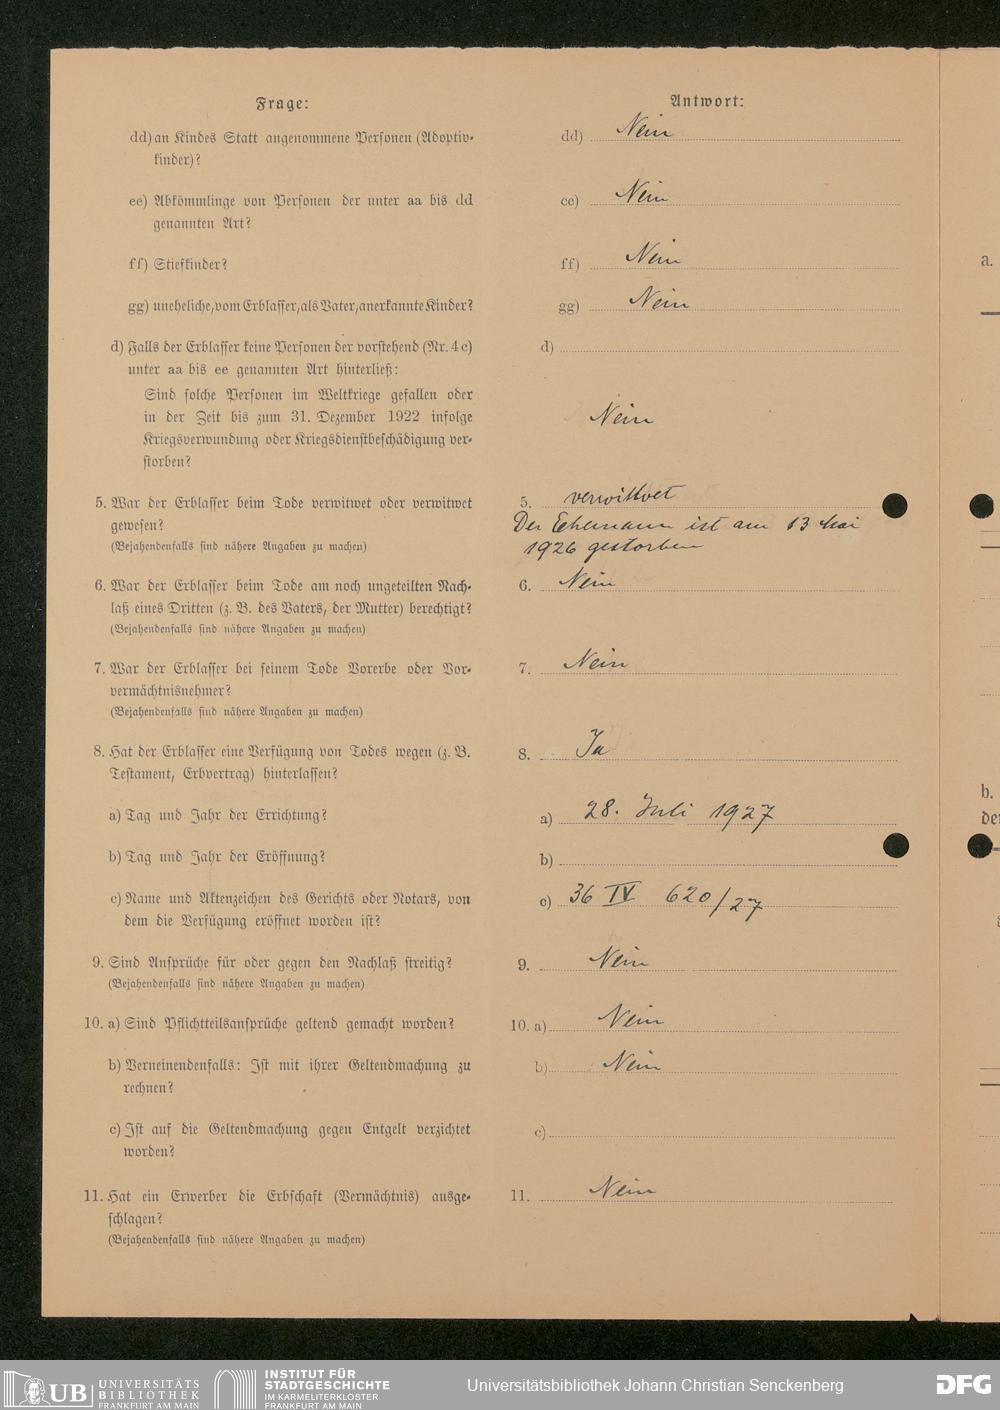 Frage:
Antwort:
dd) an Kindes Statt angenommene Personen (Adoptiv-
kinder)?
dd) Nein
ee) Abkömmlinge von Personen der unter aa bis dd
genannten Art?
ee) Nein
ff) Stiefkinder?
ff) Nein
gg) uneheliche, vom Erblasser, als Vater, anerkannte Kinder?
gg) Nein
d) Falls der Erblasser keine Personen der vorstehend (Nr. 4 c)
unter aa bis ee genannten Art hinterließ:
d)
Sind solche Personen im Weltkriege gefallen oder
in der Zeit bis zum 31. Dezember 1922 infolge
Kriegsverwundung oder Kriegsdienstbeschädigung ver-
storben?
Nein
5. War der Erblasser beim Tode verwitwet oder verwitwet
gewesen?
(Bejahendenfalls sind nähere Angaben zu machen)
5. verwittwet
Der Ehemann ist am 13 Mai
1926 gestorben
6. War der Erblasser beim Tode am noch ungeteilten Nach-
laß eines Dritten (z. B. des Vaters, der Mutter) berechtigt?
(Bejahendenfalls sind nähere Angaben zu machen)
6. Nein
7. War der Erblasser bei seinem Tode Vorerbe oder Vor-
vermächtnisnehmer?
(Bejahendenfalls sind nähere Angaben zu machen)
7. Nein
8. Hat der Erblasser eine Verfügung von Todes wegen (z. B.
Testament, Erbvertrag) hinterlassen?
8. Ja
a) Tag und Jahr der Errichtung?
a) 28. Juli 1927
b) Tag und Jahr der Eröffnung?
b)
c) Name und Aktenzeichen des Gerichts oder Notars, von
dem die Verfügung eröffnet worden ist?
c) 36 IV 620/27
9. Sind Ansprüche für oder gegen den Nachlaß streitig?
(Bejahendenfalls sind nähere Angaben zu machen)
9. Nein
10. a) Sind Pflichtteilsansprüche geltend gemacht worden?
10. a) Nein
b) Verneinendenfalls: Ist mit ihrer Geltendmachung zu
rechnen?
b) Nein
c) Ist auf die Geltendmachung gegen Entgelt verzichtet
worden?
c)
11. Hat ein Erwerber die Erbschaft (Vermächtnis) ausge-
schlagen?
(Bejahendenfalls sind nähere Angaben zu machen)
11. Nein
a.
b.
UB UNIVERSITÄTS
BIBLIOTHEK
FRANKFURT AM MAIN
INSTITUT FÜR
STADTGESCHICHTE
IM KARMELITERKLOSTER
FRANKFURT AM MAIN
Universitätsbibliothek Johann Christian Senckenberg
DFG